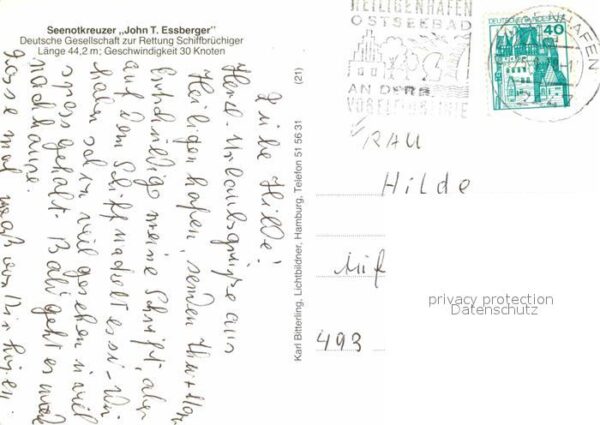 Seenotkreuzer „John T. Essberger"
Deutsche Gesellschaft zur Rettung Schiffbrüchiger
Länge 44,2 m; Geschwindigkeit 30 Knoten
Liebe Hilde!
Herzl. Urlaubsgrüße aus
Heiligenhafen, senden
Entschuldige meine Schrift, aber
auf dem Schiff wackelt es so. Wir
haben schon viel gesehen u. viel
spass gehabt. Bald geht es
nachhause
Lasse mal was von Dir hören.
Karl Bitterling, Lichtbildner, Hamburg, Telefon 51 56 31
(21)
HEILIGENHAFEN
OSTSEEBAD
AN DER
VOGELFLUGLINIE
DEUTSCHE BUNDESPOST
40
RAU
Hilde
493
privacy protection
Datenschutz